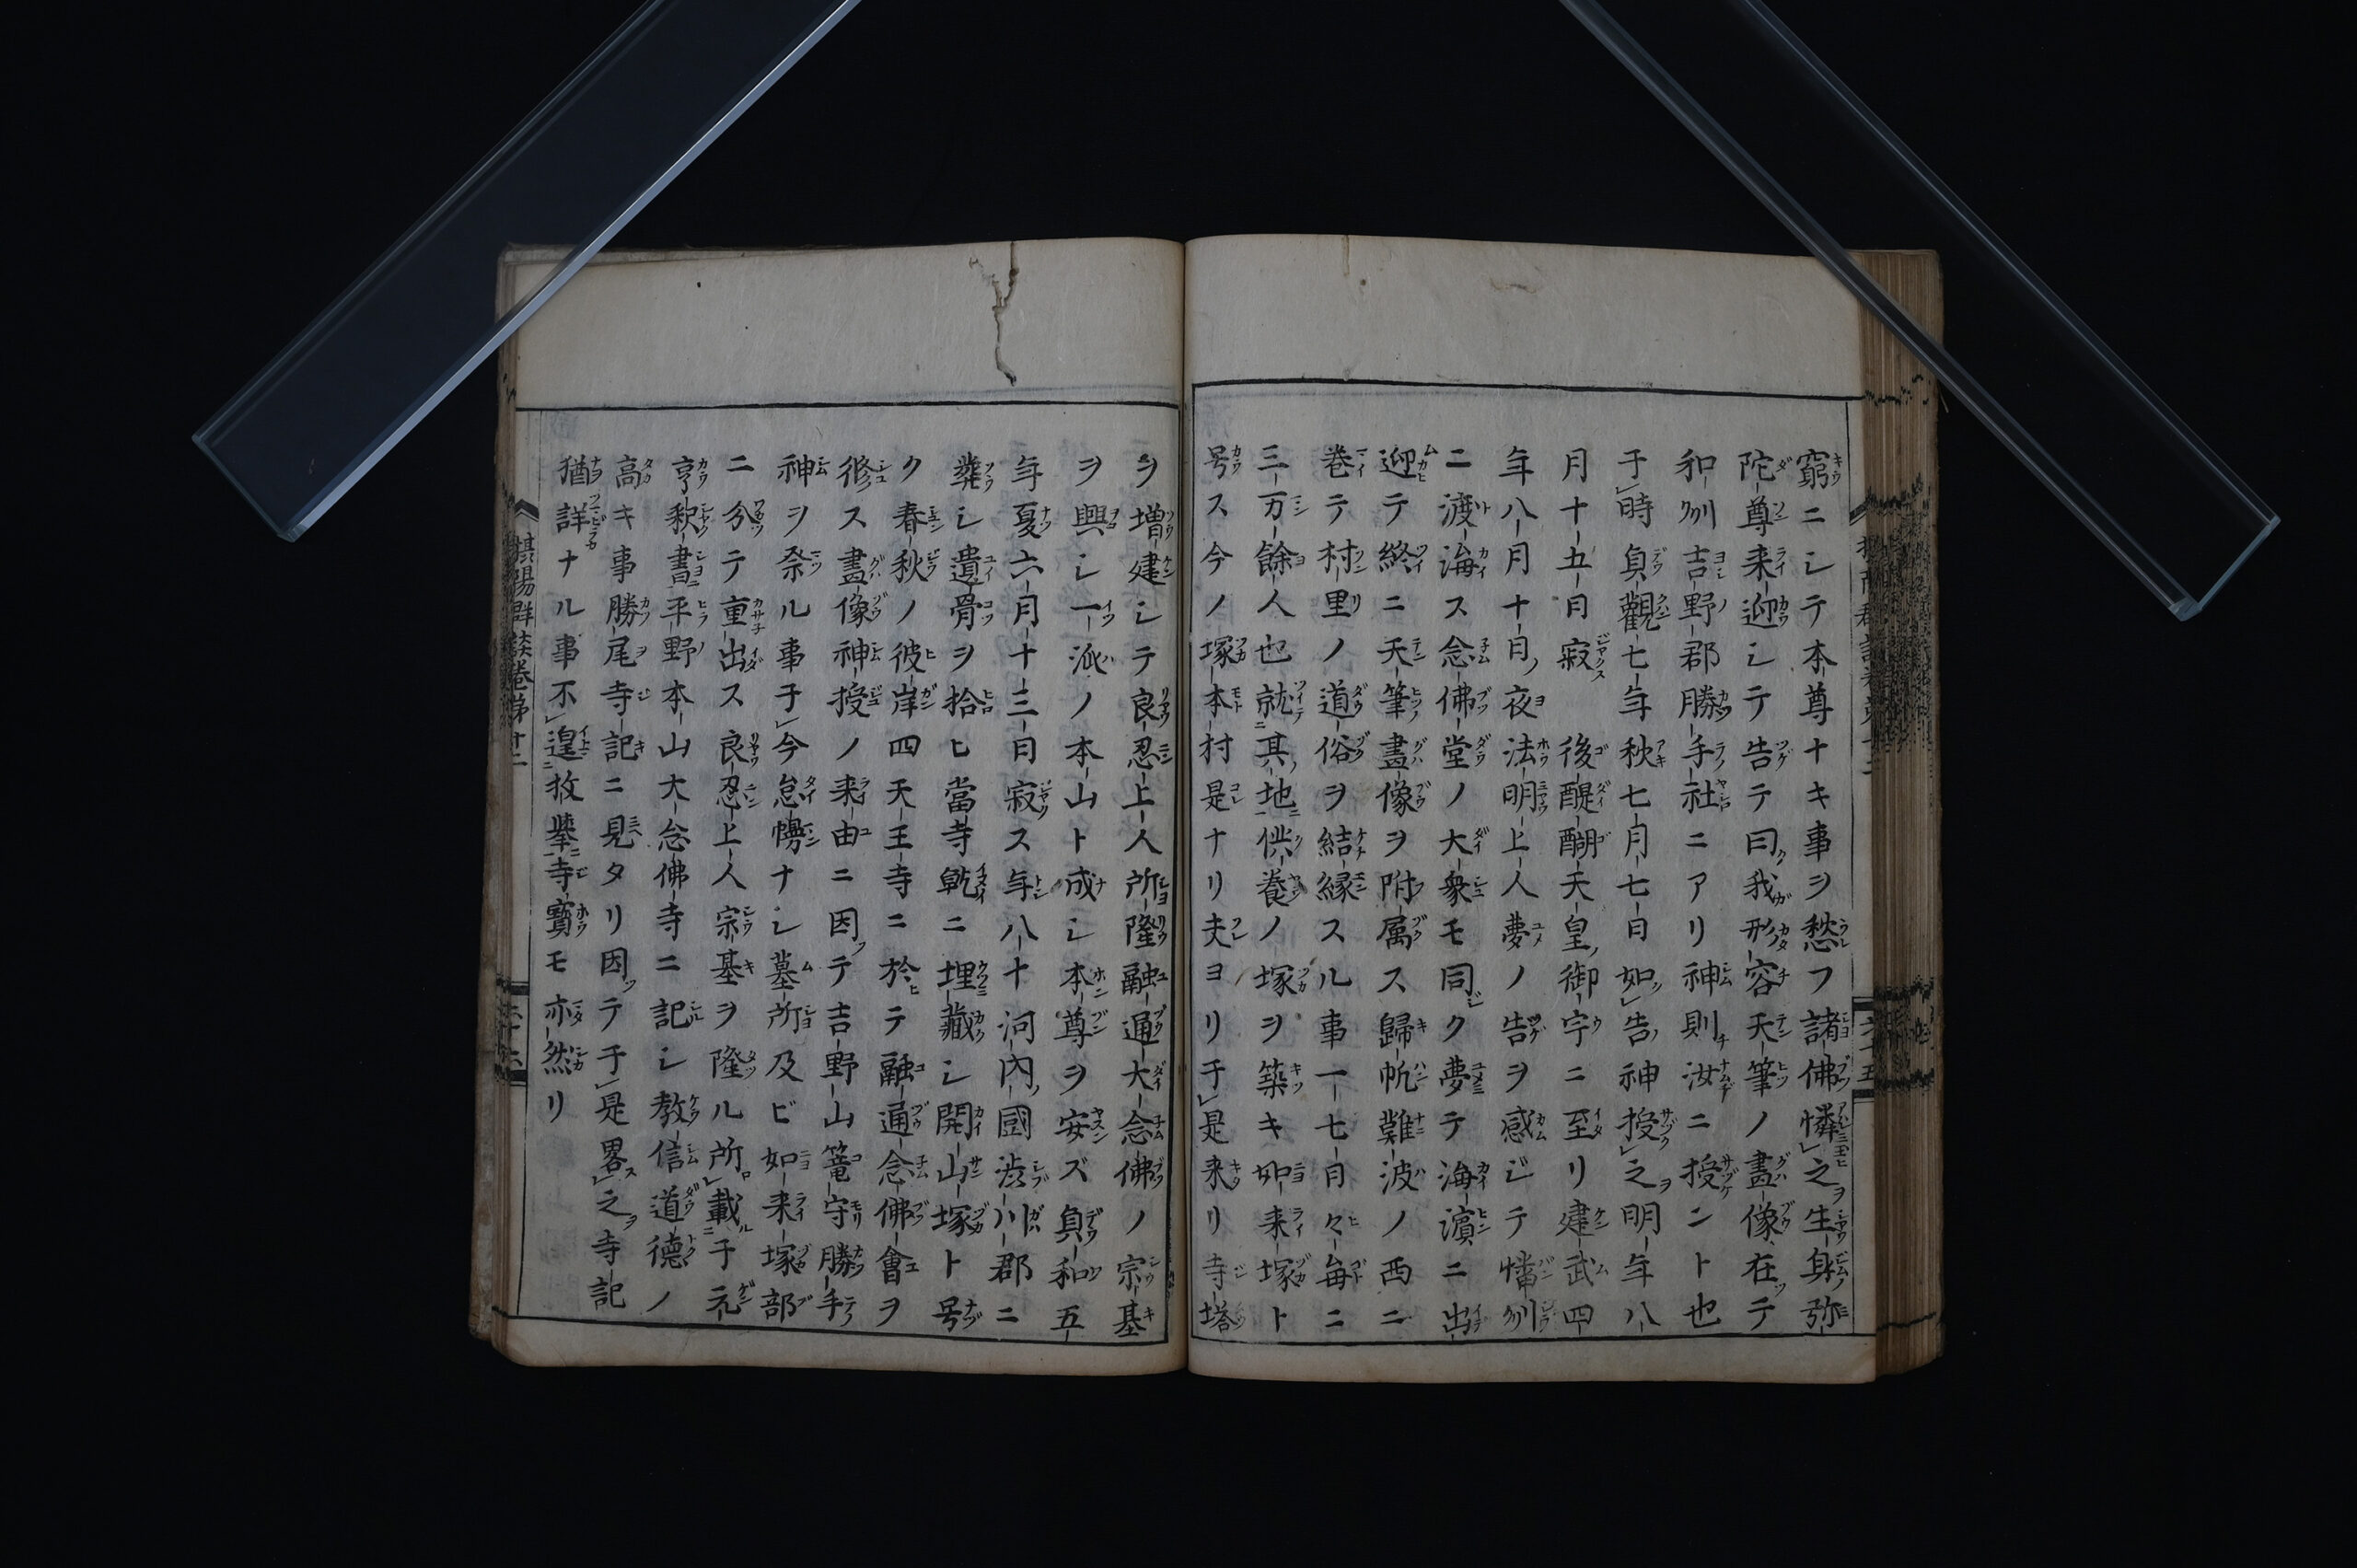 窮ニシテ本尊ナキ事ヲ愁フ諸佛憐之生身弥
陀尊来迎シテ告テ曰我形容天筆ノ畫像在テ
和刕吉野郡勝手社ニアリ神則汝ニ授ントト也
于時貞觀七年秋七月七日如告神授之明年八
月十五日寂 後醍醐天皇御宇ニ至リ建武四
年八月十日夜法明上人夢ノ告ヲ感ジテ幡刕
ニ渡海ス念佛堂ノ大衆モ同ク夢テ海濵ニ出
迎テ終ニ天筆畫像ヲ附属ス歸帆難波ノ西ニ
巻テ村里ノ道俗ヲ結縁スル事一七日々毎ニ
三万餘人也就其地供養ノ塚ヲ築キ如来塚ト
号ス今ノ塚本村是ナリ夫ヨリ于是来リ寺塔
ヲ増建シテ良忍上人所隆融通大念佛ノ宗基
ヲ興シ一派ノ本山ト成シ本尊ヲ安ズ貞和五
年夏六月十三日寂ス年八十河内國渋川郡ニ
葬シ遺骨ヲ拾ヒ當寺乾ニ埋藏シ開山塚ト号
ク春秋ノ彼岸四天王寺ニ於テ融通念佛會ヲ
修ス畫像神授ノ来由ニ因テ吉野山篭守勝手
神ヲ祭ル事于今怠慢ナシ墓所及ビ如来塚部
ニ分テ重出ス良忍上人宗基ヲ隆ル所載于元
亨釈書平野本山大念佛寺ニ記シ教信道德ノ
高キ事勝尾寺記ニ見タリ因テ于是畧之寺記
猶詳ナル事不遑枚擧寺寳モ亦然リ
摂陽群談巻第十二
六十六
六十五